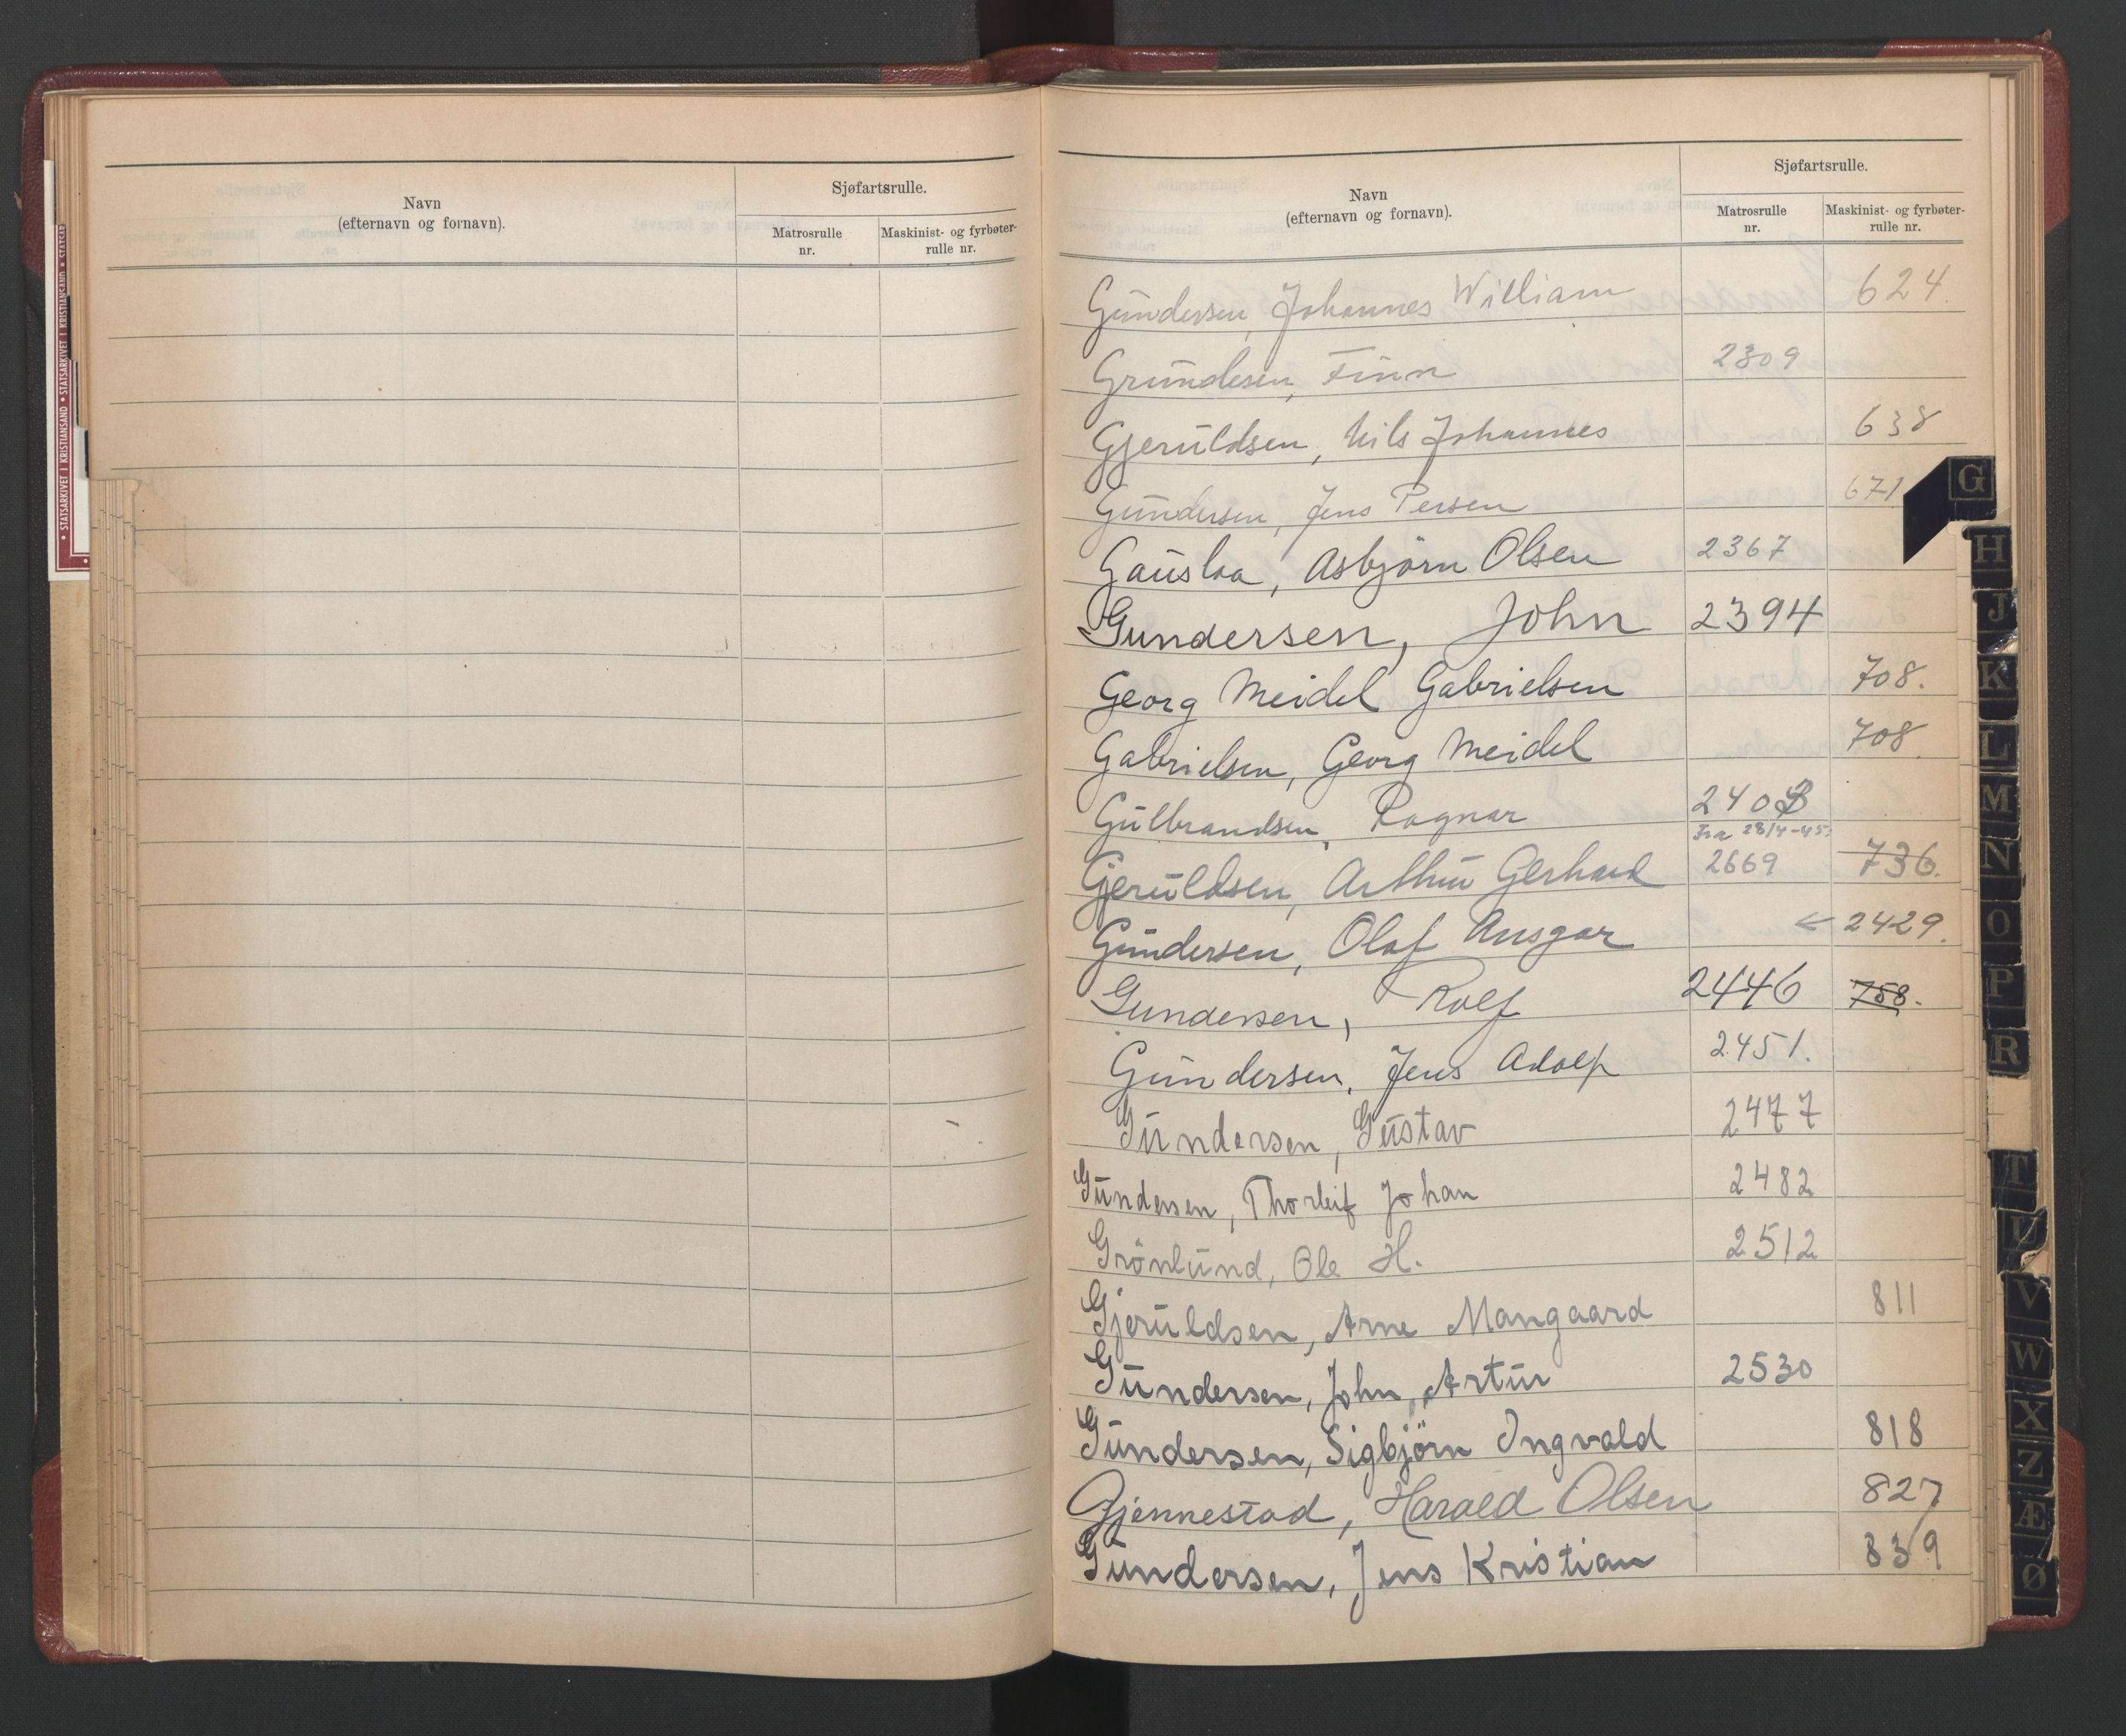 Navn
(efternavn og fornavn).
Sjøfartsrulle.
Matrosrulle
nr.
Maskinist- og fyrbøter-
rulle nr.
STATSARKIVET I KRISTIANSAND • STATSARKIVET I KRISTIANSAND •
Navn
(efternavn og fornavn).
Sjøfartsrulle.
Matrosrulle
nr.
Maskinist- og fyrbøter-
rulle nr.
Gundersen, Johannes William 624.
Grundesen, Finn 2309
Gjeruldsen, Nils Johannes 638
Gundersen, Jens Persen 671
Gauslaa, Asbjörn Olsen 2367
Gundersen, John 2394
Georg Meidel Gabrielsen 708.
Gabrielsen, Georg Meidel 708.
Gulbrandsen, Ragnar 240
Fra 28/4-45.
Gjeruldsen, Arthur Gerhard 2669 736.
Gundersen, Olaf Ansgar ← 2429.
Gundersen, Rolf 2446 758.
Gundersen, Jens Adolf 2451.
Gundersen, Gustav 2477
Gundersen, Thorleif Johan 2482
Grönlund, Ole H. 2512
Gjeruldsen, Arne Mangaard 811
Gundersen, John Artur 2530
Gundersen, Sigbjörn Ingvald 818
Gjennestad, Harald Olsen 827
Gundersen, Jens Kristian 839
G
H
J
K
L
M
N
O
P
R
T
U
V
W
X
Z
Æ
Ø